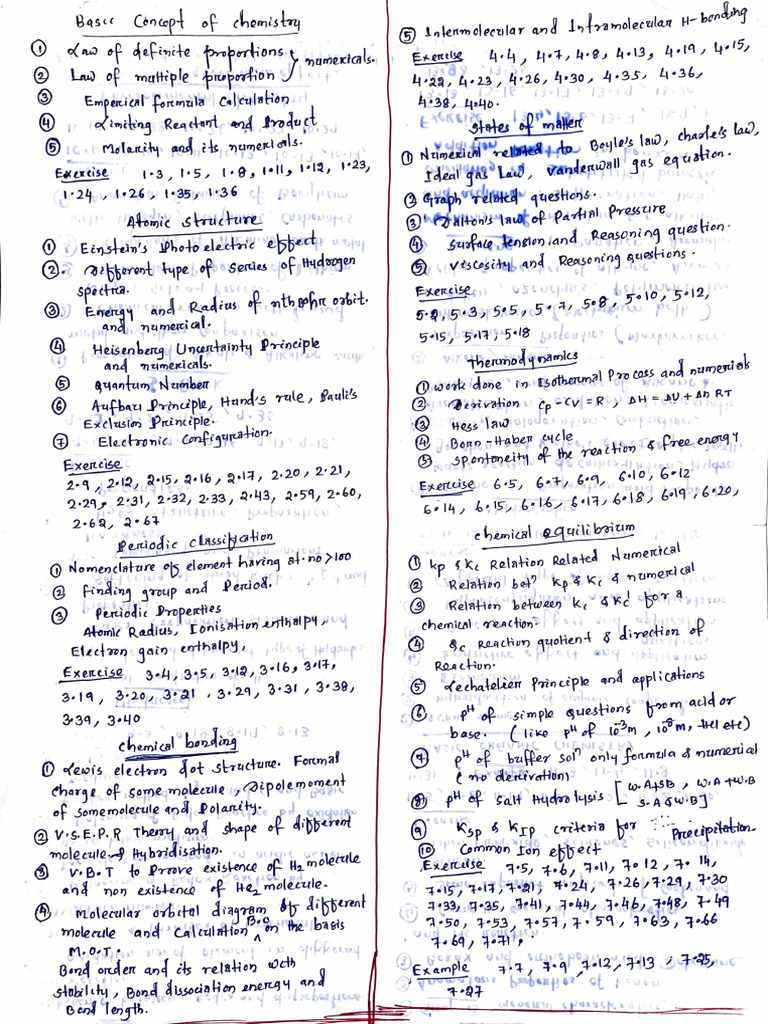 Basic Concept of chemistry
① Law of definite proportions } numericals.
② Law of multiple proportion
③ Emperical formula Calculation
④ Limiting Reactant and Product
⑤ Molarity and its numericals.
Exercise 1.3, 1.5, 1.8, 1.11, 1.12, 1.23,
1.24, 1.26, 1.35, 1.36
Atomic structure
① Einstein's Photo electric effect
②. Different type of series of Hydrogen
spectra.
③ Energy and Radius of nth Bohr orbit.
and numerical.
④ Heisenberg Uncertainty Principle
and numericals.
⑤ Quantum Number
⑥ Aufbau Principle, Hund's rule, Pauli's
Exclusion Principle.
⑦ Electronic Configuration.
Exercise
2.9, 2.12, 2.15, 2.16, 2.17, 2.20, 2.21,
2.29, 2.31, 2.32, 2.33, 2.43, 2.59, 2.60,
2.62, 2.67
Periodic Classification
① Nomenclature of element having at.no>100
② Finding group and Period.
③ Periodic Properties
Atomic Radius, Ionisation enthalpy,
Electron gain enthalpy,
Exercise 3.4, 3.5, 3.12, 3.16, 3.17,
3.19, 3.20, 3.21, 3.29, 3.31, 3.38,
3.39, 3.40
Chemical bonding
① Lewis electron dot structure. Formal
charge of some molecule, Dipolemoment
of somemolecule and Polarity.
② V.S.E.P.R Theory and shape of different
molecule → Hybridisation.
③ V.B.T to Prove existence of H2 molecule
and non existence of He2 molecule.
④ Molecular orbital diagram of different
molecule and Calculation B.O on the basis
M.O.T.
Bond order and its relation with
stability, Bond dissociation energy and
Bond length.
⑤ Intermolecular and Intramolecular H-bonding
Exercise 4.4, 4.7, 4.8, 4.13, 4.19, 4.15,
4.22, 4.23, 4.26, 4.30, 4.35, 4.36,
4.38, 4.40.
States of matter
① Numerical related to Boyle's law, charle's law,
Ideal gas Law, vanderwall gas equation.
② Graph related questions.
③ Dalton's law of Partial Pressure
④ Surface tension and Reasoning question.
⑤ Viscosity and Reasoning questions.
Exercise
5.2, 5.3, 5.5, 5.7, 5.8, 5.10, 5.12,
5.15, 5.17, 5.18
Thermodynamics
① work done in Isothermal Process and numericals
② Derivation Cp-Cv=R, ΔH=ΔU+Δn RT
③ Hess law
④ Born-Haber cycle
⑤ spontoneity of the reaction & free energy
Exercise 6.5, 6.7, 6.9, 6.10, 6.12
6.14, 6.15, 6.16, 6.17, 6.18, 6.19, 6.20,
chemical equilibrium
① Kp & Kc Relation Related Numerical
② Relation betⁿ Kp & Kc & numerical
③ Relation between Kc & Kc' for a
chemical reaction.
④ Qc Reaction quotient & direction of
Reaction.
⑤ Lechatelier Principle and applications
⑥ pH of simple questions from acid or
base. (like pH of 10⁻³m, 10⁻⁸m, Hcl etc)
⑦ pH of buffer solⁿ only formula & numerical
(no derivation)
⑧ pH of Salt Hydrolysis [W.A+SB, W.A+W.B
S.A & W.B]
⑨ Ksp & KIp criteria for Precipitation.
⑩ Common Ion effect
Exercise 7.5, 7.6, 7.11, 7.12, 7.14,
7.15, 7.17, 7.21, 7.24, 7.26, 7.29, 7.30
7.33, 7.35, 7.41, 7.44, 7.46, 7.48, 7.49
7.50, 7.53, 7.57, 7.59, 7.63, 7.66
7.69, 7.71,
Example 7.7, 7.9, 7.12, 7.13, 7.25,
7.27